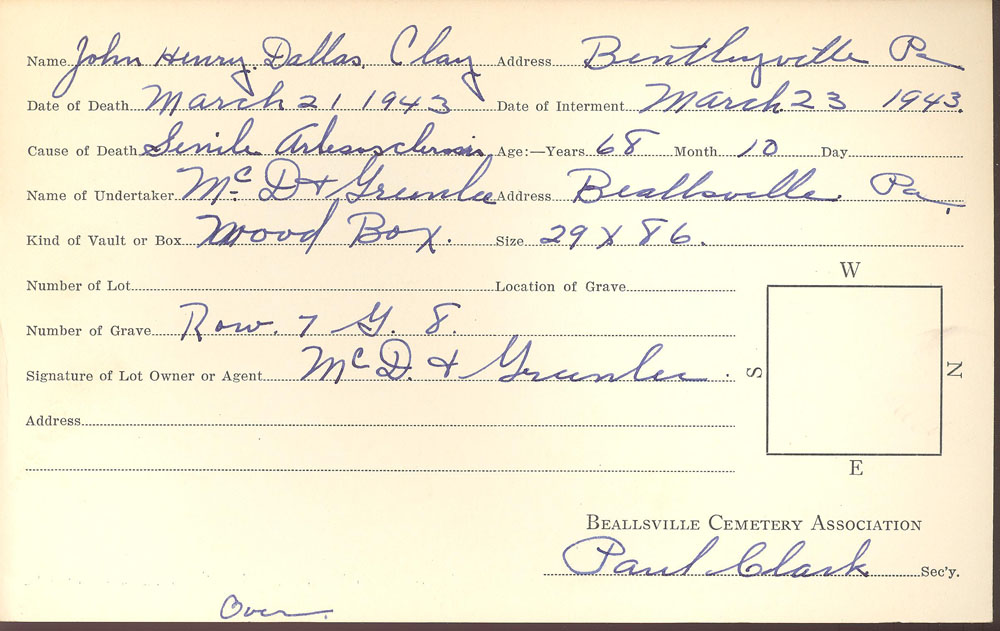 Name John Henry Dallas Clay Address Bentleyville Pa
Date of Death March 21 1943 Date of Interment March 23 1943.
Cause of Death Senile Age:—Years 68 Month 10 Day
Name of Undertaker McD & Greenlee Address Beallsville Pa.
Kind of Vault or Box Wood Box. Size 29 X 86.
Number of Lot Location of Grave
W
Number of Grave Row. 7 G. 8.
Signature of Lot Owner or Agent Mc D. & Greenlee.
S N
Address
E
BEALLSVILLE CEMETERY ASSOCIATION
Paul Clark Sec'y.
Over.